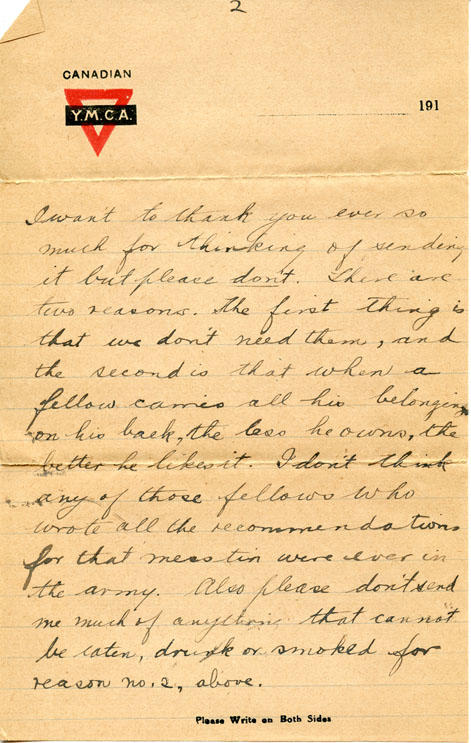 2
CANADIAN
Y.M.C.A.
191
I want to thank you ever so
much for thinking of sending
it but please don't. There are
two reasons. The first thing is
that we don't need them, and
the second is that when a
fellow carries all his belongings
on his back, the less he owns, the
better he likes it. I don't think
any of those fellows who
wrote all the recommendations
for that mess tin were ever in
the army. Also please don't send
me much of anything that cannot
be eaten, drunk or smoked for
reason no. 2, above.
Please Write on Both Sides